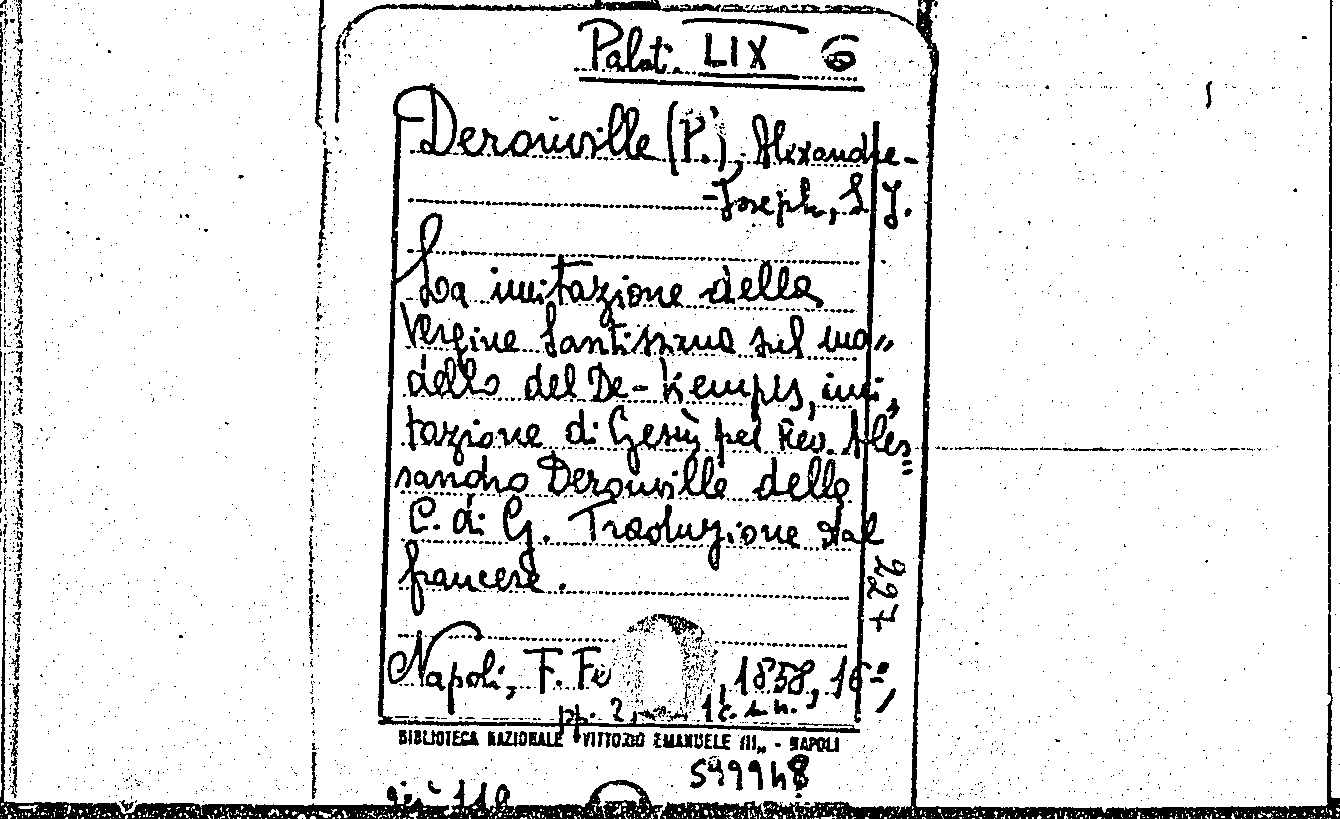 Palat. LIX 6
Derouville (P.), Alexandre-
-Joseph, S. J.
La imitazione della
Vergine Santissima sul mo„
dello del De-Kempis, imi„
tazione di Gesù pel Rev. Ales„
sandro Derouville della
C. di G. Traduzione dal
francese.
Napoli, F. 1858, 16º,
pp. 2, 1 c. s. n.
BIBLIOTECA NAZIONALE "VITTORIO EMANUELE III„ - NAPOLI
227
599948
già 110